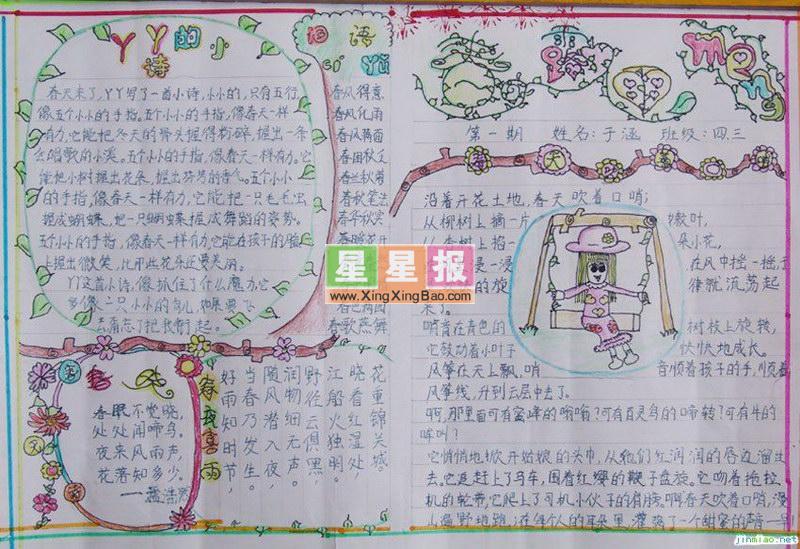 丫丫的小
诗
春天来了,丫丫写了一首小诗,小小的,只有五行
像五个小小的手指,五个小小的手指,像春天一样
有力,它能把冬天的骨头握得粉碎,握出一条
去唱歌的小溪。五个小小的手指,像春天一样有力,它
能把小树握出花朵,握出芬芳的香气。五个小小
的手指,像春天一样有力,它能把一只毛毛虫
握成蝴蝶,把一只蝴蝶握成舞蹈的姿势。
五个小小的手指,像春天一样有力,它能在孩子的脸
上握出微笑,比那些花朵还要美丽。
丫丫这首小诗,像抓住了什么魔力,它
词语
cí yǔ
春风得意
春风化雨
春风满面
春兰秋菊
春华秋实
春歌燕舞
春晓
春眠不觉晓,
处处闻啼鸟。
夜来风雨声,
花落知多少。
——孟浩然
春夜喜雨
好雨知时节,
当春乃发生。
随风潜入夜,
润物细无声。
野径云俱黑,
江船火独明。
晓看红湿处,
花重锦官城。
meng
第一期 姓名:于涵 班级:四三
沿着开花土地,春天吹着口哨;
从柳树上摘一片嫩叶,
从杏树上掐一朵小花,
在风中摇一摇,
的旋律就流荡起
来了。
哨音在青色的树枝上旋转,
它鼓动着小叶子快快地成长。
风筝在天上飘,哨音顺着孩子的手,顺着
风筝线,升到云层中去了。
啊,那里面可有蜜蜂的嗡嗡?可有百灵鸟的啼转?可有牛的
哞叫?
它悄悄地掀开姑娘的头巾,从她们红润润的唇边溜过
去。它追赶上了马车,围着红缨的鞭子盘旋。它吻着拖拉
机的轮带,它爬上了司机小伙子的肩膀。啊春天吹着口哨,漫
山遍野地跑;在每个人的耳朵里,灌满了一个甜蜜的声音
星星报
www.XingXingBao.com
jinmiao.net